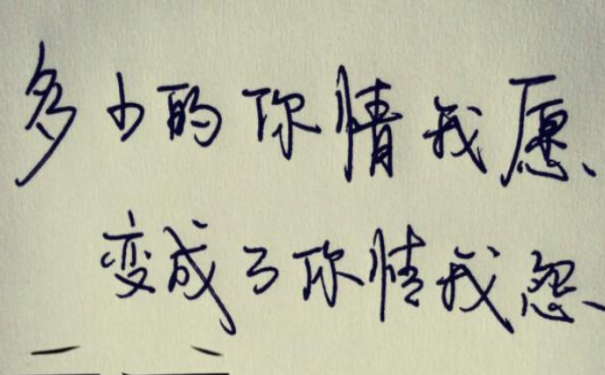 多少的你情我愿、
变成了你情我怨、